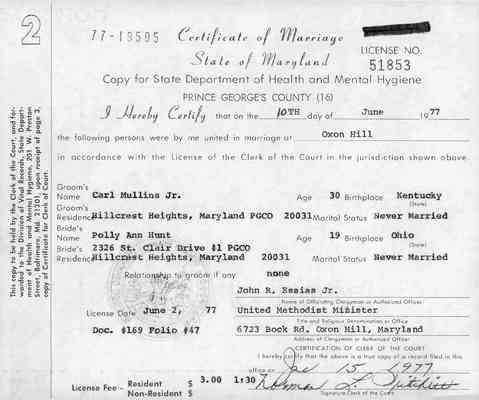 2
77-19595 Certificate of Marriage
State of Maryland
LICENSE NO.
51853
Copy for State Department of Health and Mental Hygiene
PRINCE GEORGE'S COUNTY (16)
I Hereby Certify that on the 10TH day of June 1977
the following persons were by me united in marriage at Oxon Hill
in accordance with the License of the Clerk of the Court in the jurisdiction shown above.
Groom's Name Carl Mullins Jr. Age 30 Birthplace Kentucky
(State)
Groom's Residence Hillcrest Heights, Maryland PGCO 20031 Marital Status Never Married
Bride's Name Polly Ann Hunt Age 19 Birthplace Ohio
(State)
Bride's Residence 2326 St. Clair Drive #1 PGCO
Hillcrest Heights, Maryland 20031 Marital Status Never Married
Relationship to groom if any none
John R. Essias Jr.
Name of Officiating Clergyman or Authorized Officer
License Date June 2, 77 United Methodist Minister
Title and Religious Denomination or Office
Doc. #169 Folio #47 6723 Bock Rd. Oxon Hill, Maryland
Address of Clergyman or Authorized Officer
CERTIFICATION OF CLERK OF THE COURT
I hereby certify that the above is a true copy of a record filed in this
office on 15 1977
License Fee - Resident $ 3.00 1:30 Norman L. Pritchett
Non-Resident $ Signature Clerk of the Court
This copy to be held by the Clerk of the Court, and forwarded to the Division of Vital Records, State Department of Health and Mental Hygiene, 201 W. Preston Street, Baltimore, Md. 21201, upon receipt of page 3, copy of Certificate for Clerk of Court.